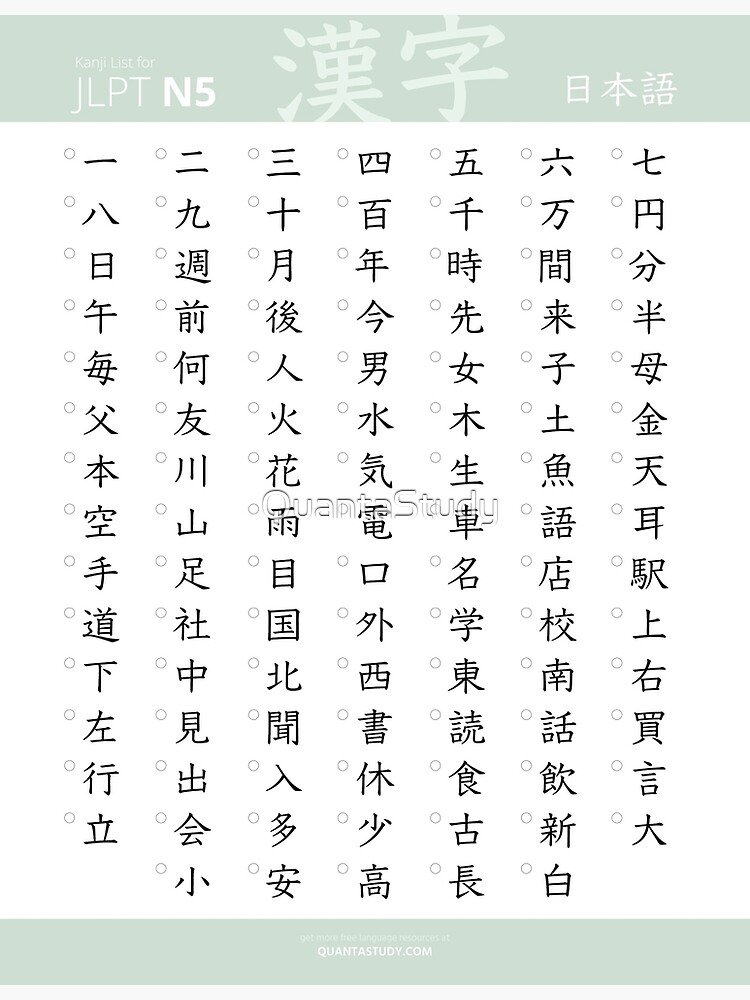 Kanji List for
JLPT N5
漢字
日本語
一 二 三 四 五 六 七
八 九 十 百 千 万 円
日 週 月 年 時 間 分
午 前 後 今 先 来 半
毎 何 人 男 女 子 母
父 友 火 水 木 土 金
本 川 花 気 生 魚 天
空 山 雨 電 車 語 耳
QuantaStudy
手 足 目 口 名 店 駅
道 社 国 外 学 校 上
下 中 北 西 東 南 右
左 見 聞 書 読 話 買
行 出 入 休 食 飲 言
立 会 多 少 古 新 大
小 安 高 長 白
get more free language resources at
QUANTASTUDY.COM